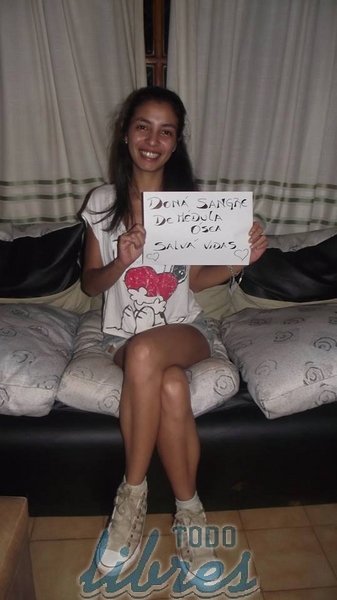 DONÁ SANGRE
DE MÉDULA
OSEA
SALVÁ VIDAS
TODO
libres